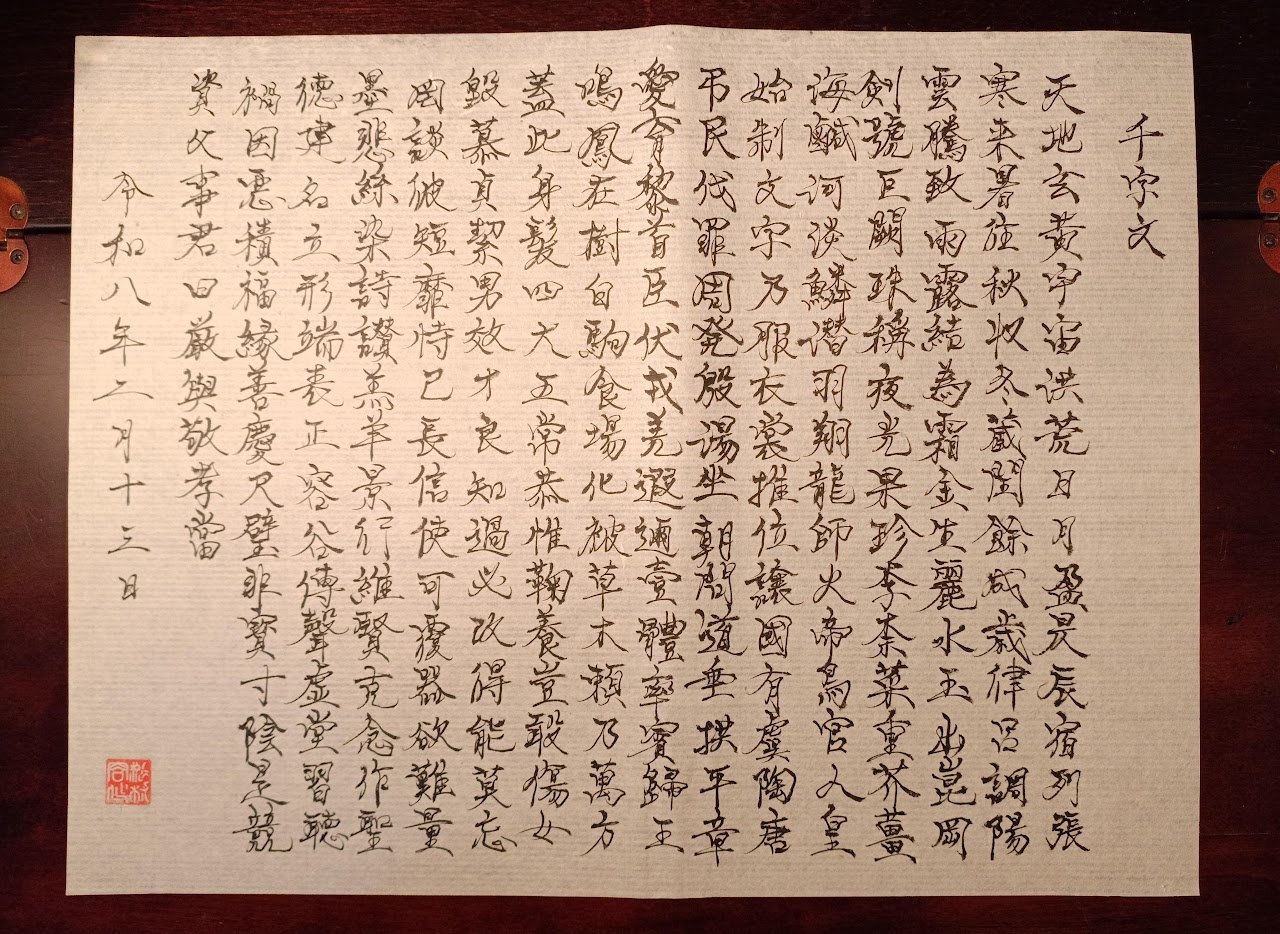 千字文
天地玄黄宇宙洪荒日月盈昃辰宿列張
寒来暑往秋收冬蔵閏餘成歳律呂調陽
雲騰致雨露結為霜金生麗水玉出崑岡
剣號巨闕珠稱夜光果珍李柰菜重芥薑
海鹹河淡鱗潜羽翔龍師火帝鳥官人皇
始制文字乃服衣裳推位譲國有虞陶唐
弔民伐罪周発殷湯坐朝問道垂拱平章
愛育黎首臣伏戎羌遐邇壹體率賓歸王
鳴鳳在樹白駒食場化被草木頼及萬方
蓋此身髪四大五常恭惟鞠養豈敢傷女
毀慕貞絜男效才良知過必改得能莫忘
罔談彼短靡恃己長信使可覆器欲難量
墨悲絲染詩讃羔羊景行維賢克念作聖
徳建名立形端表正容谷傳聲虚堂習聴
禍因悪積福縁善慶尺璧非寶寸陰是競
資父事君曰厳與敬孝當
令和八年二月十三日